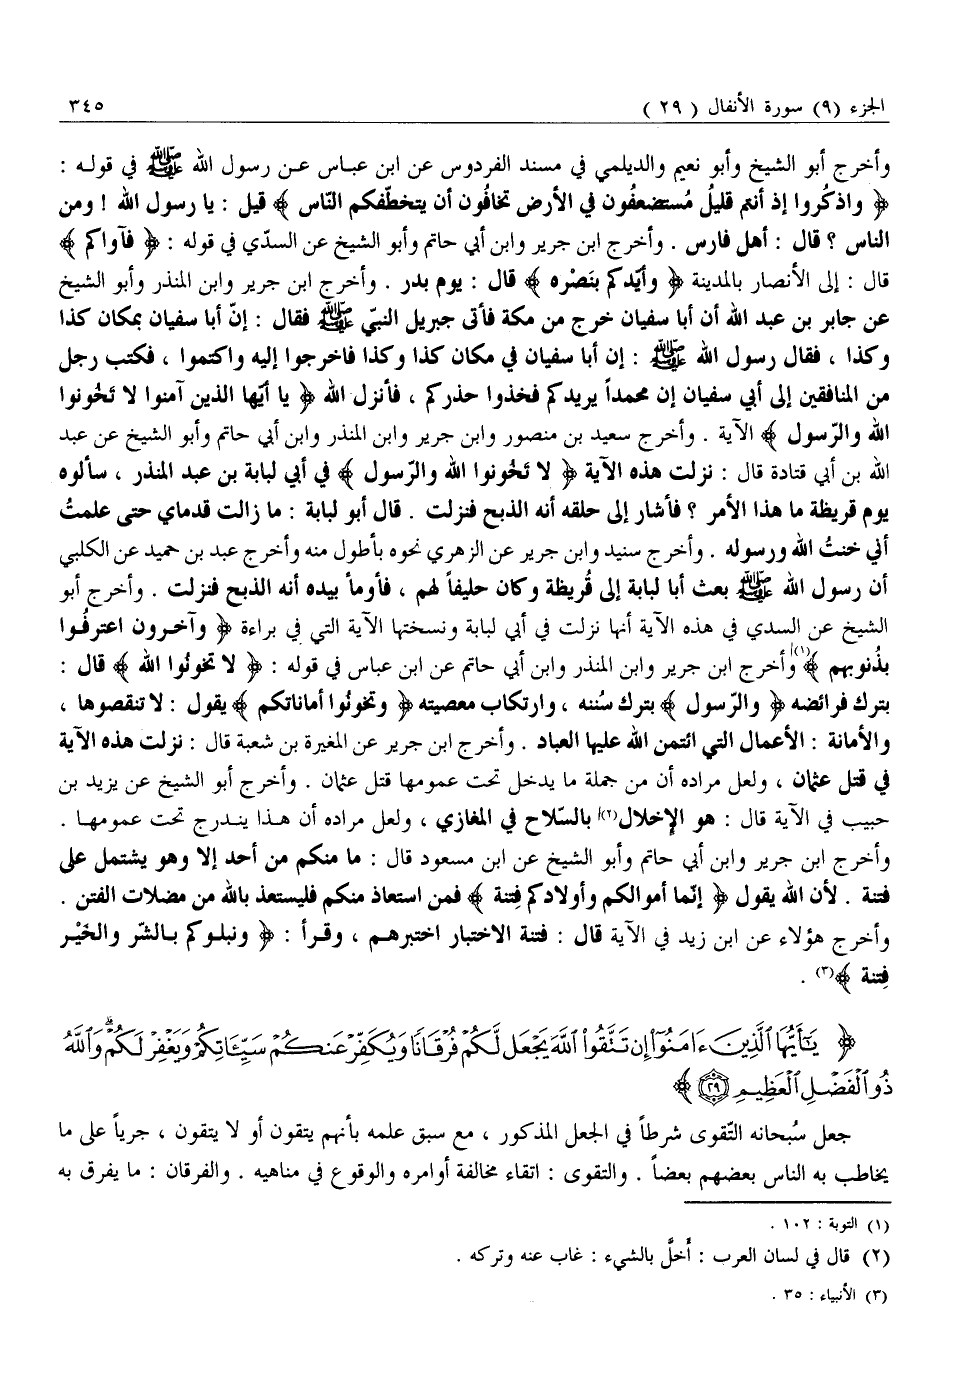 الجزء (٩) سورة الأنفال ( ٢٩ ) ٣٤٥
وأخرج أبو الشيخ وأبو نعيم والديلمي في مسند الفردوس عن ابن عباس عن رسول الله ﷺ في قوله :
﴿ واذكُروا إذ أنتم قليلُ مُستضعفُون في الأرض تخافُون أن يتخطّفكم النّاس ﴾ قيل : يا رسول الله ! ومن
الناس ؟ قال : أهل فارس . وأخرج ابن جرير وابن أبي حاتم وأبو الشيخ عن السدّي في قوله : ﴿ فآواكم ﴾
قال : إلى الأنصار بالمدينة ﴿ وأيّدكم بنَصْره ﴾ قال : يوم بدر . وأخرج ابن جرير وابن المنذر وأبو الشيخ
عن جابر بن عبد الله أن أبا سفيان خرج من مكة فأتى جبريل النبيّ ﷺ فقال : إنّ أبا سفيان بمكان كذا
وكذا ، فقال رسول الله ﷺ : إن أبا سفيان في مكان كذا وكذا فاخرجوا إليه واكتموا ، فكتب رجل
من المنافقين إلى أبي سفيان إن محمداً يريدكم فخذوا حذركم ، فأنزل الله ﴿ يا أيّها الذين آمنوا لا تَخُونوا
الله والرّسول ﴾ الآية . وأخرج سعيد بن منصور وابن جرير وابن المنذر وابن أبي حاتم وأبو الشيخ عن عبد
الله بن أبي قتادة قال : نزلت هذه الآية ﴿ لا تَخُونوا الله والرّسول ﴾ في أبي لبابة بن عبد المنذر ، سألوه
يوم قريظة ما هذا الأمر ؟ فأشار إلى حلقه أنه الذبح فنزلت . قال أبو لبابة : ما زالت قدماي حتى علمتُ
أني خنتُ الله ورسوله . وأخرج سنيد وابن جرير عن الزهري نحوه بأطول منه وأخرج عبد بن حميد عن الكلبي
أن رسول الله ﷺ بعث أبا لبابة إلى قُريظة وكان حليفاً لهم ، فأومأ بيده أنه الذبح فنزلت . وأخرج أبو
الشيخ عن السدي في هذه الآية أنها نزلت في أبي لبابة ونسختها الآية التي في براءة ﴿ وآخرون اعترفُوا
بذُنوبهم ﴾(١) وأخرج ابن جرير وابن المنذر وابن أبي حاتم عن ابن عباس في قوله : ﴿ لا تخونُوا الله ﴾ قال :
بترك فرائضه ﴿ والرّسول ﴾ بترك سُننه ، وارتكاب معصيته ﴿ وتخونُوا أماناتكم ﴾ يقول : لا تنقصوها ،
والأمانة : الأعمال التي ائتمن الله عليها العباد . وأخرج ابن جرير عن المغيرة بن شعبة قال : نزلت هذه الآية
في قتل عثمان ، ولعل مراده أن من جملة ما يدخل تحت عمومها قتل عثمان . وأخرج أبو الشيخ عن يزيد بن
حبيب في الآية قال : هو الإخلال(٢) بالسّلاح في المغازي ، ولعل مراده أن هذا يندرج تحت عمومها .
وأخرج ابن جرير وابن أبي حاتم وأبو الشيخ عن ابن مسعود قال : ما منكم من أحد إلا وهو يشتمل على
فتنة . لأن الله يقول ﴿ إنّما أموالكم وأولادكم فِتنة ﴾ فمن استعاذ منكم فليستعذ بالله من مضلات الفتن .
وأخرج هؤلاء عن ابن زيد في الآية قال : فتنة الاختبار اختبرهم ، وقرأ : ﴿ ونبلوكم بالشّر والخَيْر
فِتنة ﴾(٣) .
﴿ يَٰٓأَيُّهَا ٱلَّذِينَ ءَامَنُوٓا۟ إِن تَتَّقُوا۟ ٱللَّهَ يَجْعَل لَّكُمْ فُرْقَانًا وَيُكَفِّرْ عَنكُمْ سَيِّـَٔاتِكُمْ وَيَغْفِرْ لَكُمْ ۗ وَٱللَّهُ
ذُو ٱلْفَضْلِ ٱلْعَظِيمِ ٢٩ ﴾
جعل سُبحانه التّقوى شرطاً في الجعل المذكور ، مع سبق علمه بأنهم يتقون أو لا يتقون ، جرياً على ما
يخاطب به الناس بعضهم بعضاً . والتقوى : اتقاء مخالفة أوامره والوقوع في مناهيه . والفرقان : ما يفرق به
(١) التوبة : ١٠٢ .
(٢) قال في لسان العرب : أَخلَّ بالشيء : غاب عنه وتركه .
(٣) الأنبياء : ٣٥ .